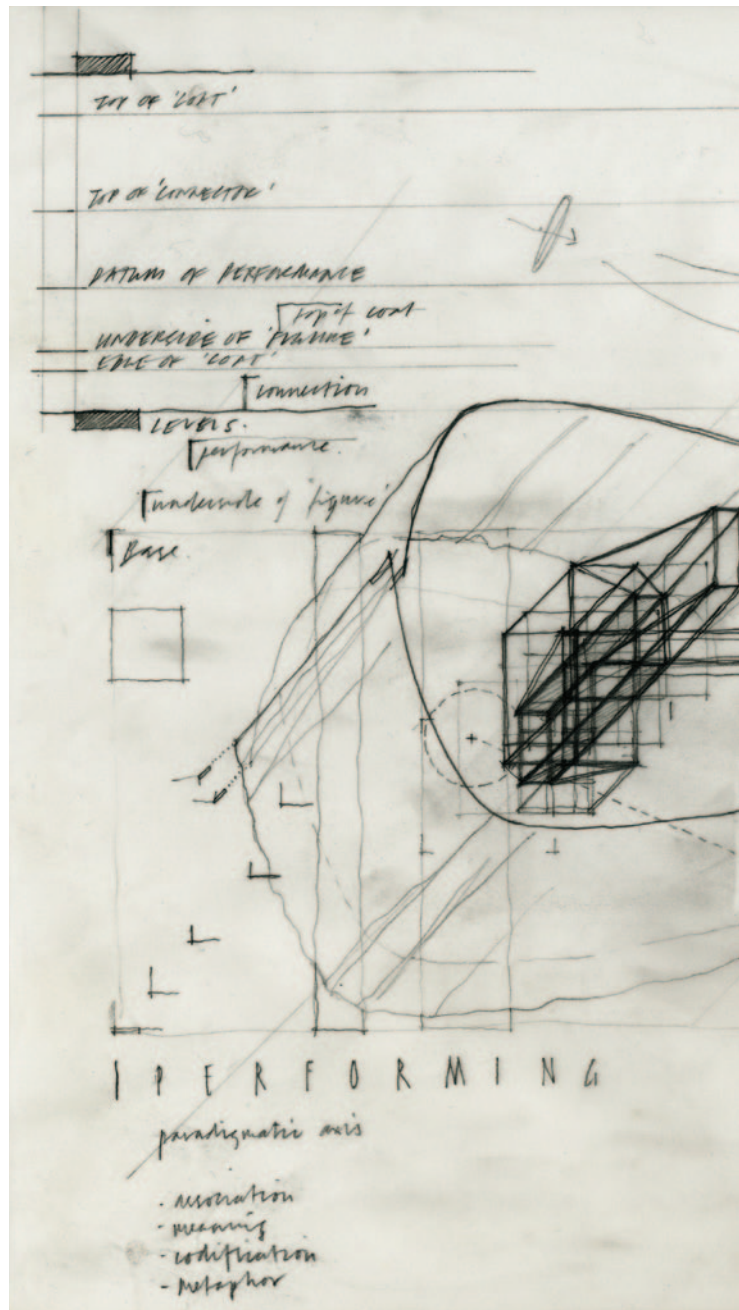 TOP OF 'COAT'
TOP OF 'CONNECTOR'
DATUM OF PERFORMANCE
top of coat
UNDERSIDE OF 'FIGURE'
EDGE OF 'COAT'
connection
LEVELS.
performance.
underside of 'figure'
Base.
PERFORMING
paradigmatic axis
- association
- meaning
- codification
- Metaphor